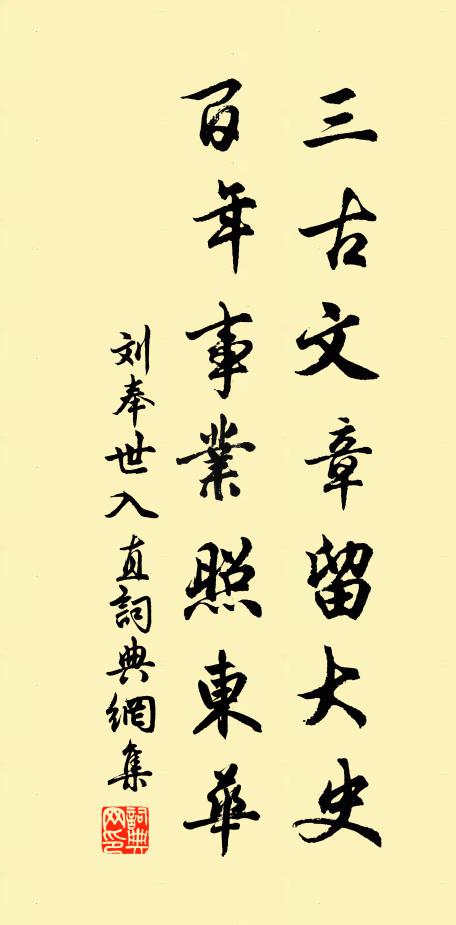 三古文章留大史
百年事業照東華
刘奉世入直詞典網集
詞典网印